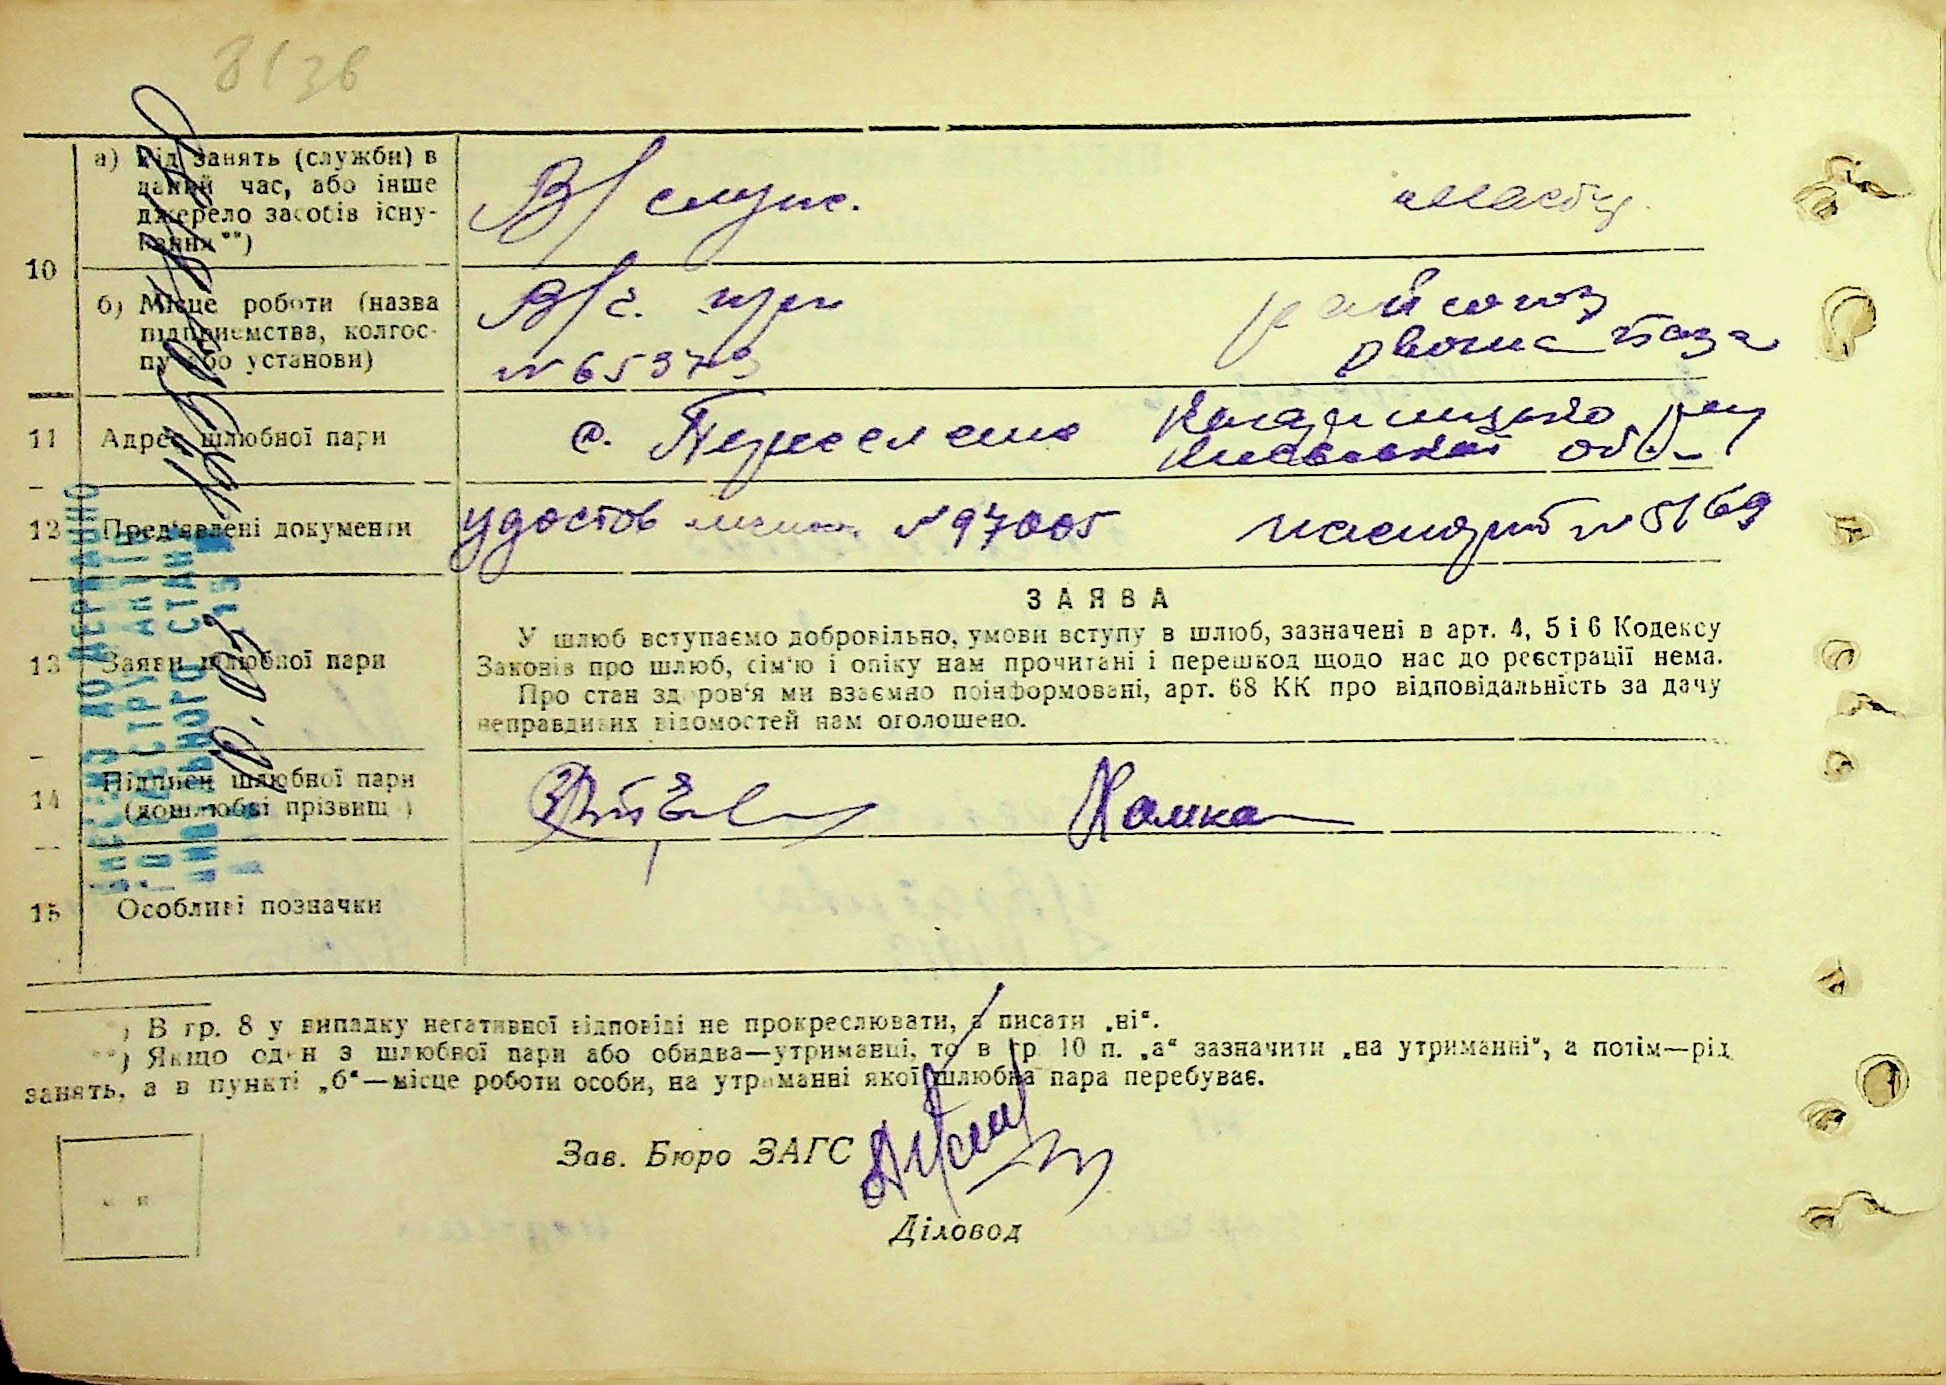 8136
10
а) Рід занять (служби) в
даний час, або інше
джерело засобів існу-
вання**)
В/служ.
б) Місце роботи (назва
підприємства, колгос-
пу або установи)
В/ч. при
№ 65373
райсоюз
11 Адрес шлюбної пари
с. Переселение
обл.
12 Пред'явлені документи
удостов личн. № 97005
паспорт № 5169
13 Заяви шлюбної пари
ЗАЯВА
У шлюб вступаємо добровільно, умови вступу в шлюб, зазначені в арт. 4, 5 і 6 Кодексу
Законів про шлюб, сім'ю і опіку нам прочитані і перешкод щодо нас до реєстрації нема.
Про стан здоров'я ми взаємно поінформовані, арт. 68 КК про відповідальність за дачу
неправдивих відомостей нам оголошено.
14 Підписи шлюбної пари
(дошлюбні прізвищ )
Хомка
15 Особливі позначки
ВНЕСЕНО ДО ДЕРЖАВНО
ГО РЕЄСТРУ АКТІВ
ЦИВІЛЬНОГО СТАН
*) В гр. 8 у випадку негативної відповіді не прокреслювати, а писати „ні“.
**) Якщо один з шлюбної пари або обидва—утриманці, то в гр 10 п. „а“ зазначити „на утриманні“, а потім—рід
занять, а в пункті „б“—місце роботи особи, на утриманні якої шлюбна пара перебуває.
Зав. Бюро ЗАГС
Діловод